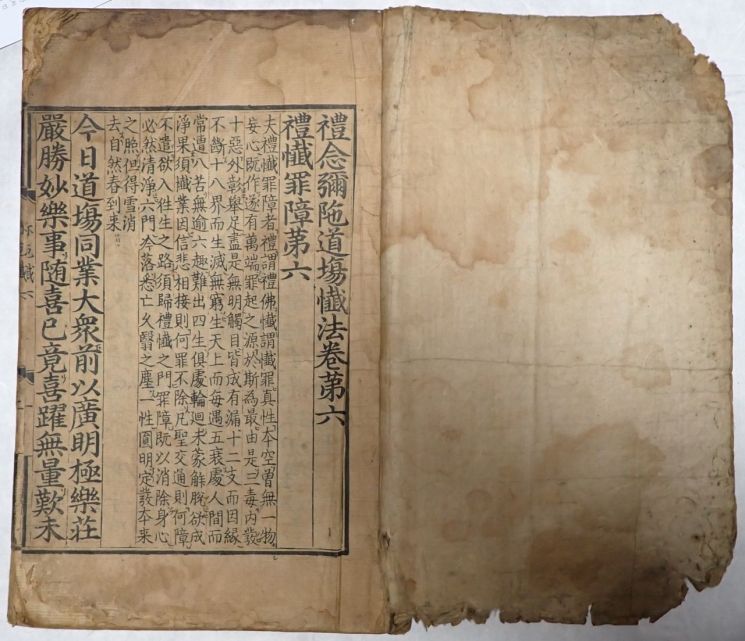 禮念彌陁道塲懺法卷苐六
禮懺罪障苐六
夫禮懺罪障者禮謂禮佛懺謂懺罪真性本空曽無一物
妄心旣作遂有萬端罪起之源於斯為最由是三毒内發
十惡外彰舉足盡是無明觸目皆成有漏十二支而因緣
不斷十八界而生滅無窮生天上而每遇五衰處人間而
常遭八苦無逾六趣難出四生俱處輪迴未蒙解脫欲成
淨果須懺業因信悲相接則何罪不除凡聖交通則何障
不遣欲入徃生之路須歸禮懺之門罪障旣以消除身心
必然清淨六門冷落悉亡久翳之塵一性圓明定發本来
之照但得雪消
去自然春到来
今日道塲同業大衆前以廣明極樂莊
嚴勝妙樂事随喜已竟喜躍無量歎未
懺六